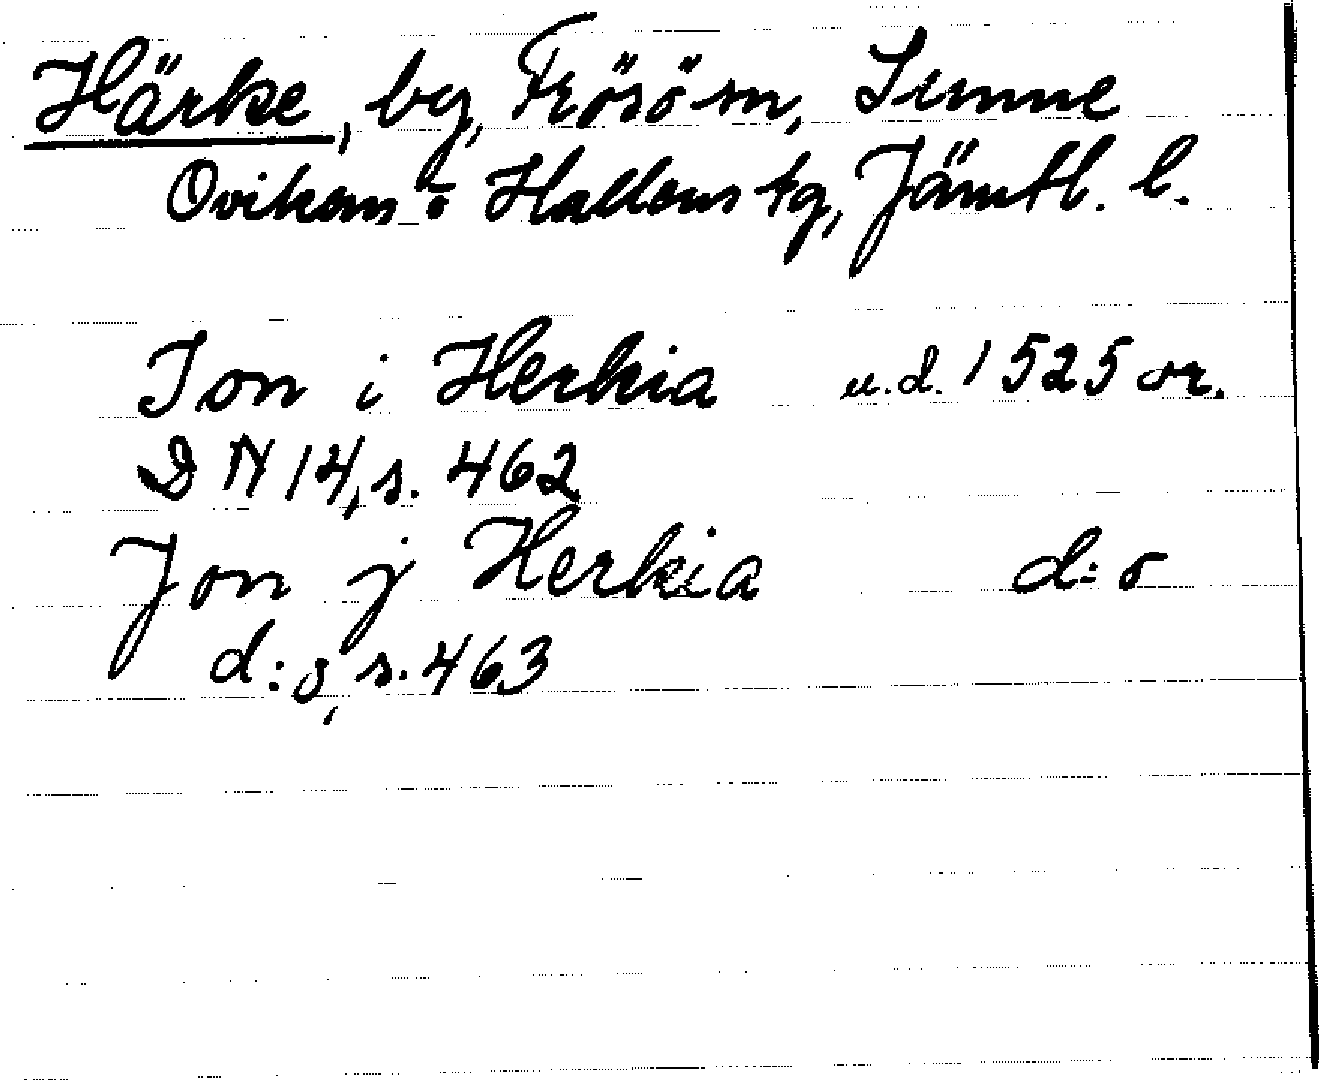 Härke, by, Frösö sn, Sunne
Ovikens o Hallens tg, Jämtl. l.
Ion i Herkia u.d. 1525 or.
DN 14, s. 462
Jon j Herkia d:o
d:o, s. 463